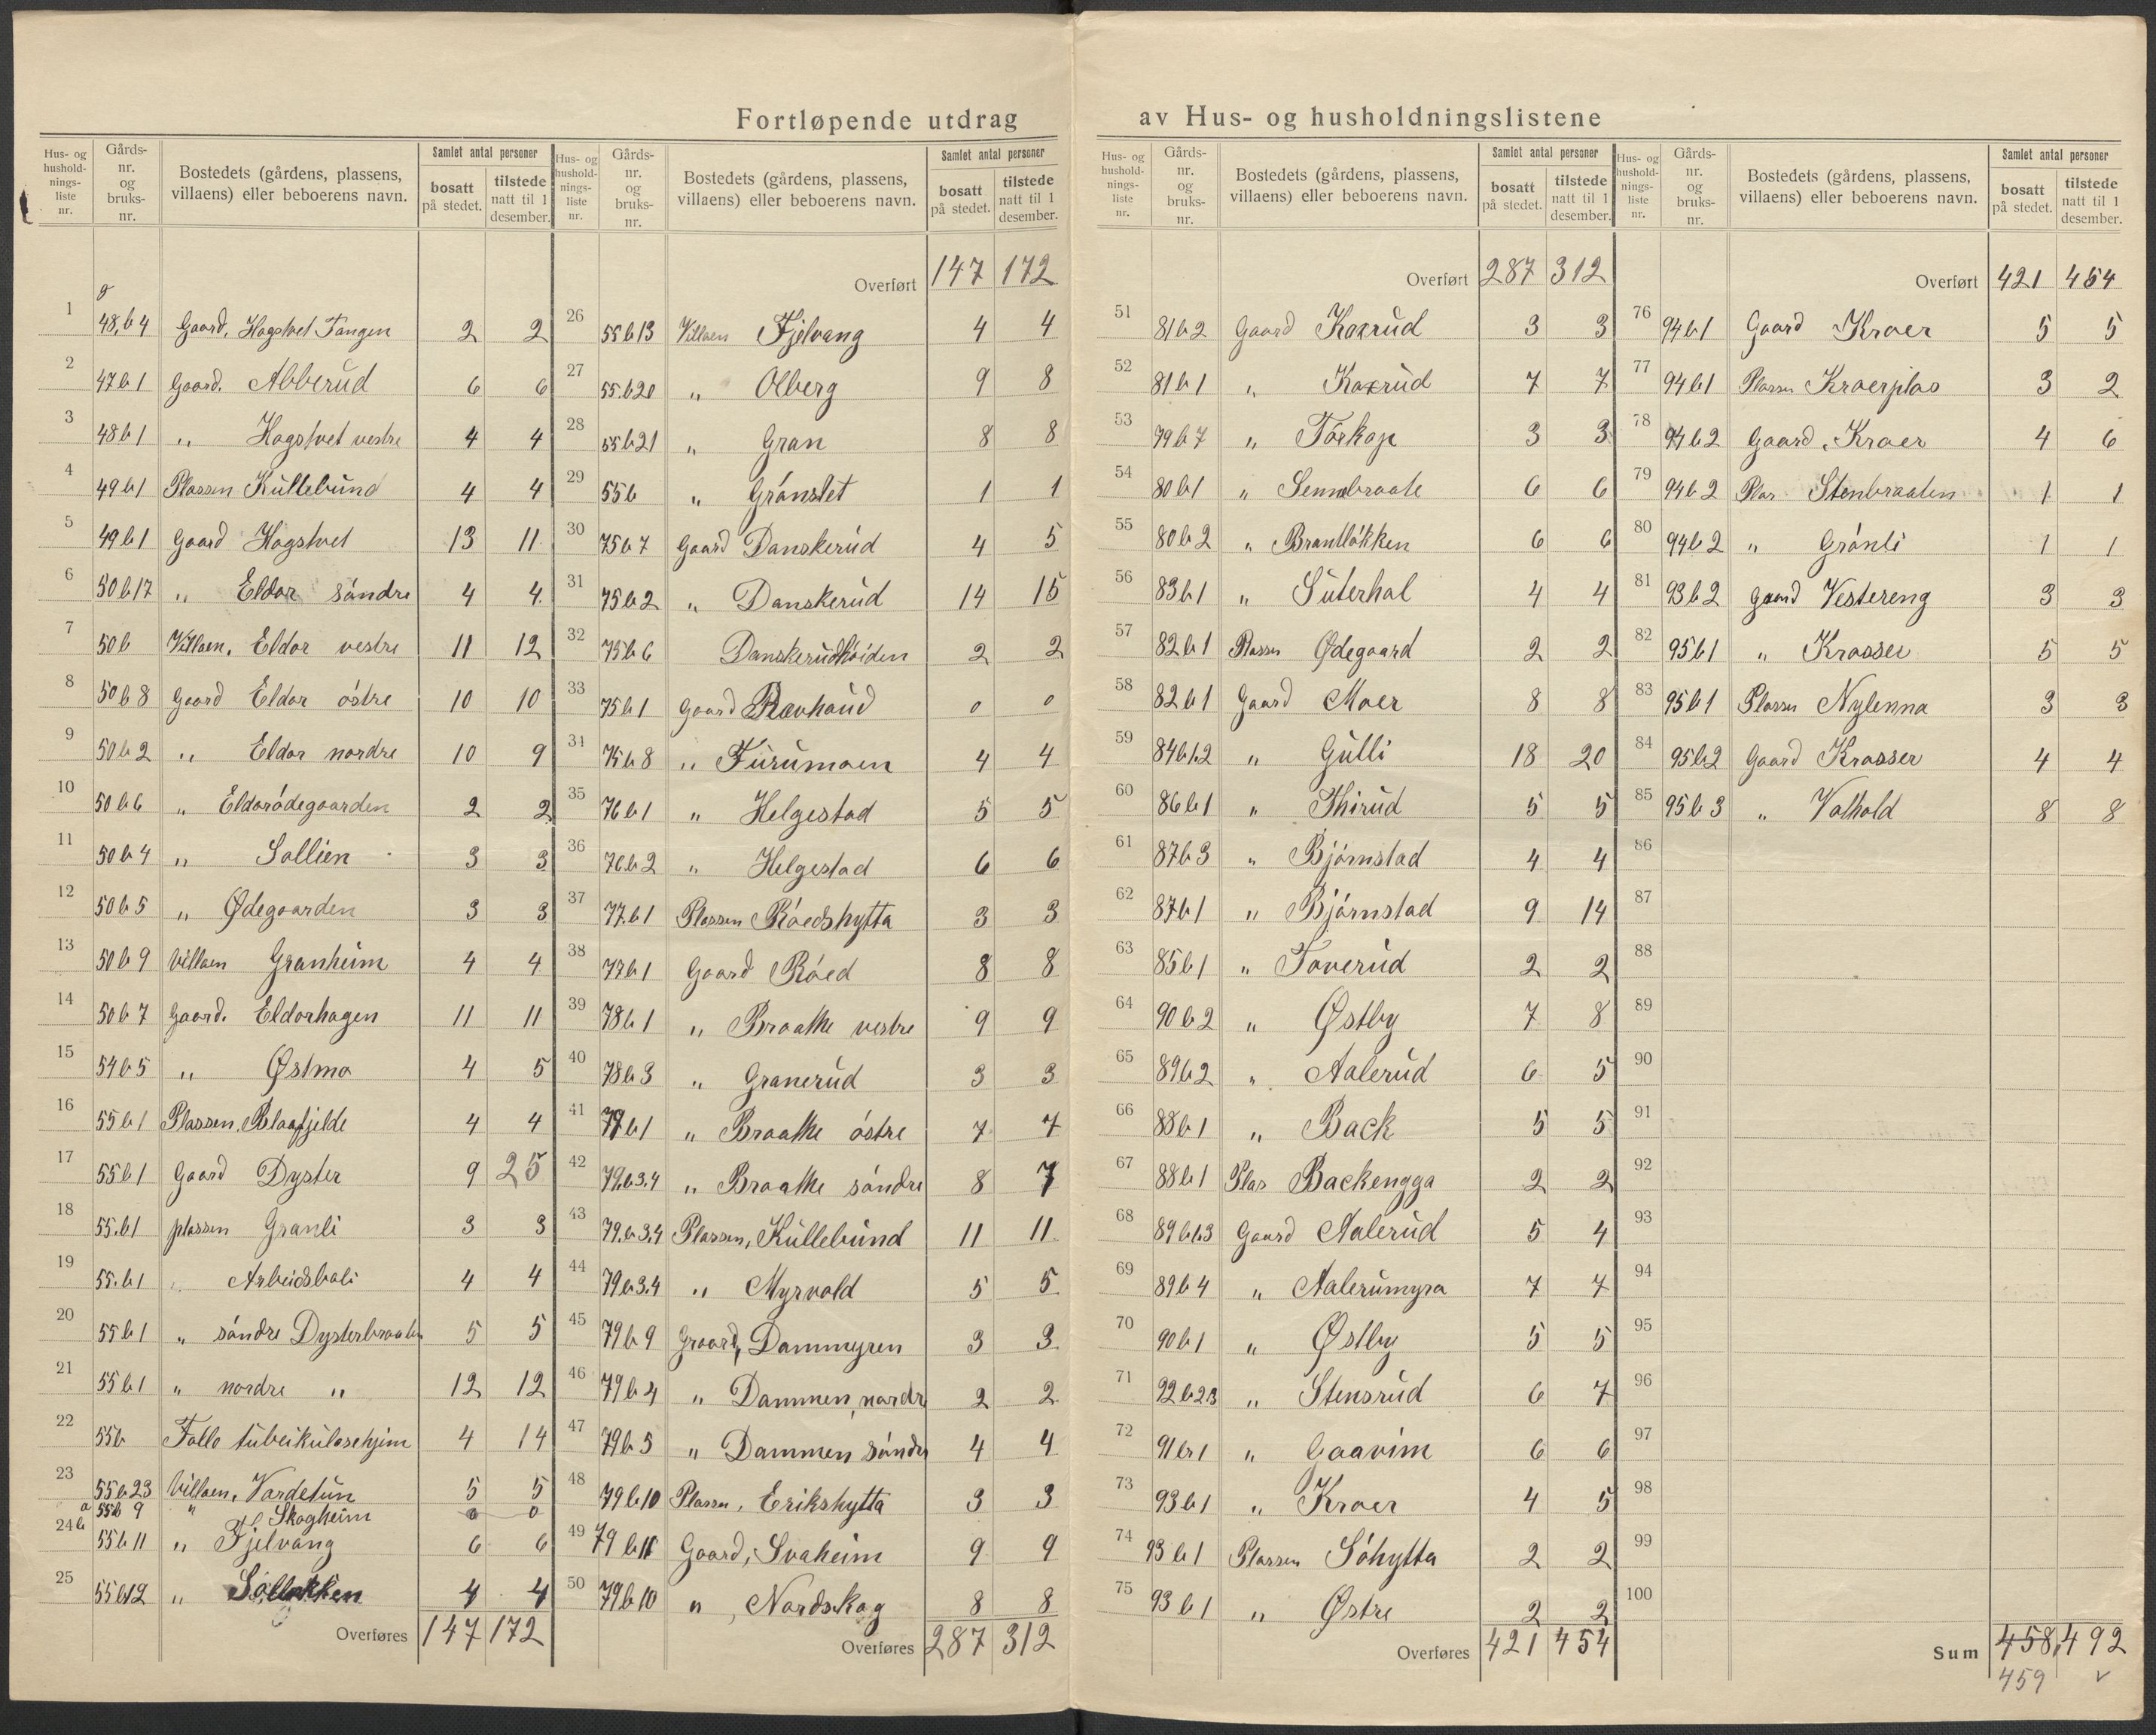 Fortløpende utdrag av Hus- og husholdningslistene
Hus- og hushold-nings-liste nr. | Gårds-nr. og bruks-nr. | Bostedets (gårdens, plassens, villaens) eller beboerens navn. | Samlet antal personer | bosatt på stedet. | tilstede natt til 1 desember.
1 48,b4 Gaard, Hagstvet Tangen 2 2
2 47b1 Gaard. Abberud 6 6
3 48b1 " Hagstvet vestre 4 4
4 49b1 Plassen Kullebund 4 4
5 49b1 Gaard Hagstvet 13 11
6 50b17 " Eldor söndre 4 4
7 50b Villaen. Eldor vestre 11 12
8 50b8 Gaard Eldor östre 10 10
9 50b2 " Eldor nordre 10 9
10 50b6 " Eldorödegaarden 2 2
11 50b4 " Sollien 3 3
12 50b5 " Ødegaarden 3 3
13 50b9 Villaen Granheim 4 4
14 50b7 Gaard. Eldorhagen 11 11
15 54b5 " Østmo 4 5
16 55b1 Plassen. Blaafjelde 4 4
17 55b1 Gaard Dyster 9 25
18 55.b1 plassen Granli 3 3
19 55.b1 " Arbeidsboli 4 4
20 55b1 " söndre Dysterbraaten 5 5
21 55b1 " nordre " 12 12
22 55b Follo tuberkulosehjim 4 14
23 55b23 Villaen, Vardetun 5 5
a 55b9 " Skogheim 0 0
24b 55b11 " Fjelvang 6 6
25 55b12 " Sollökken 4 4
Overføres 147 172
Hus- og hushold-nings-liste nr. | Gårds-nr. og bruks-nr. | Bostedets (gårdens, plassens, villaens) eller beboerens navn. | Samlet antal personer | bosatt på stedet. | tilstede natt til 1 desember.
Overført 147 172
26 55b13 Villaen Fjelvang 4 4
27 55.b20 " Olberg 9 8
28 55b21 " Gran 8 8
29 55b " Grönslet 1 1
30 75b7 Gaard Danskerud 4 5
31 75b2 " Danskerud 14 15
32 75b6 Danskerudhöiden 2 2
33 75b1 Gaard Ravhaud 0 0
34 75b8 " Furumoen 4 4
35 76b1 " Helgestad 5 5
36 76b2 " Helgestad 6 6
37 77.b1 Plassen Röedshytta 3 3
38 77b1 Gaard Röed 8 8
39 78b1 " Braathe vestre 9 9
40 78b3 " Granerud 3 3
41 79b1 " Braathe östre 7 7
42 79.b3.4 " Braathe söndre 8 7
43 79.b3.4 Plassen, Kullebund 11 11
44 79b3.4 " Myrvold 5 5
45 79b9 Graard, Dammyren 3 3
46 79b4 " Dammen, nordr 2 2
47 79b5 " Dammen söndr 4 4
48 79b10 Plassen, Erikshytta 3 3
49 79b11 Gaard, Svaheim 9 9
50 79b10 " Nordskog 8 8
Overføres 287 312
Hus- og hushold-nings-liste nr. | Gårds-nr. og bruks-nr. | Bostedets (gårdens, plassens, villaens) eller beboerens navn. | Samlet antal personer | bosatt på stedet. | tilstede natt til 1 desember.
Overført 287 312
51 81b2 Gaard Kaxrud 3 3
52 81b1 " Kaxrud 7 7
53 79b7 " Töskop 3 3
54 80b1 " Sennebraate 6 6
55 80b2 " Brantlökken 6 6
56 83b1 " Suterhol 4 4
57 82b1 Plassen Ødegaard 2 2
58 82b1 Gaard Moer 8 8
59 84b1.2 " Gulli 18 20
60 86b1 " Thirud 5 5
61 87b3 " Björnstad 4 4
62 87b1 " Björnstad 9 14
63 85b1 " Toverud 2 2
64 90b2 " Østby 7 8
65 89b2 " Aalerud 6 5
66 88b1 " Back 5 5
67 88b1 Plas Backengga 2 2
68 89b1.3 Gaard Aalerud 5 4
69 89b4 " Aalerumyra 7 7
70 90b1 " Østby 5 5
71 92b2.3 " Stensrud 6 7
72 91b1 " Gaavim 6 6
73 93b1 " Kroer 4 5
74 93b1 Plassen Söhytta 2 2
75 93b1 " Østre 2 2
Overføres 421 454
Hus- og hushold-nings-liste nr. | Gårds-nr. og bruks-nr. | Bostedets (gårdens, plassens, villaens) eller beboerens navn. | Samlet antal personer | bosatt på stedet. | tilstede natt til 1 desember.
Overført 421 454
76 94b1 Gaard Kroer 5 5
77 94b1 Plassen Kroerplas 3 2
78 94b2 Gaard, Kroer 4 6
79 94b2 Plas Stenbraaten 1 1
80 94b2 " Grönli 1 1
81 93b2 gaard Vestereng 3 3
82 95b1 " Krosser 5 5
83 95b1 Plassen Nylenna 3 3
84 95b2 Gaard Krosser 4 4
85 95b3 " Volhold 8 8
86
87
88
89
90
91
92
93
94
95
96
97
98
99
100
Sum 458 492
459 v